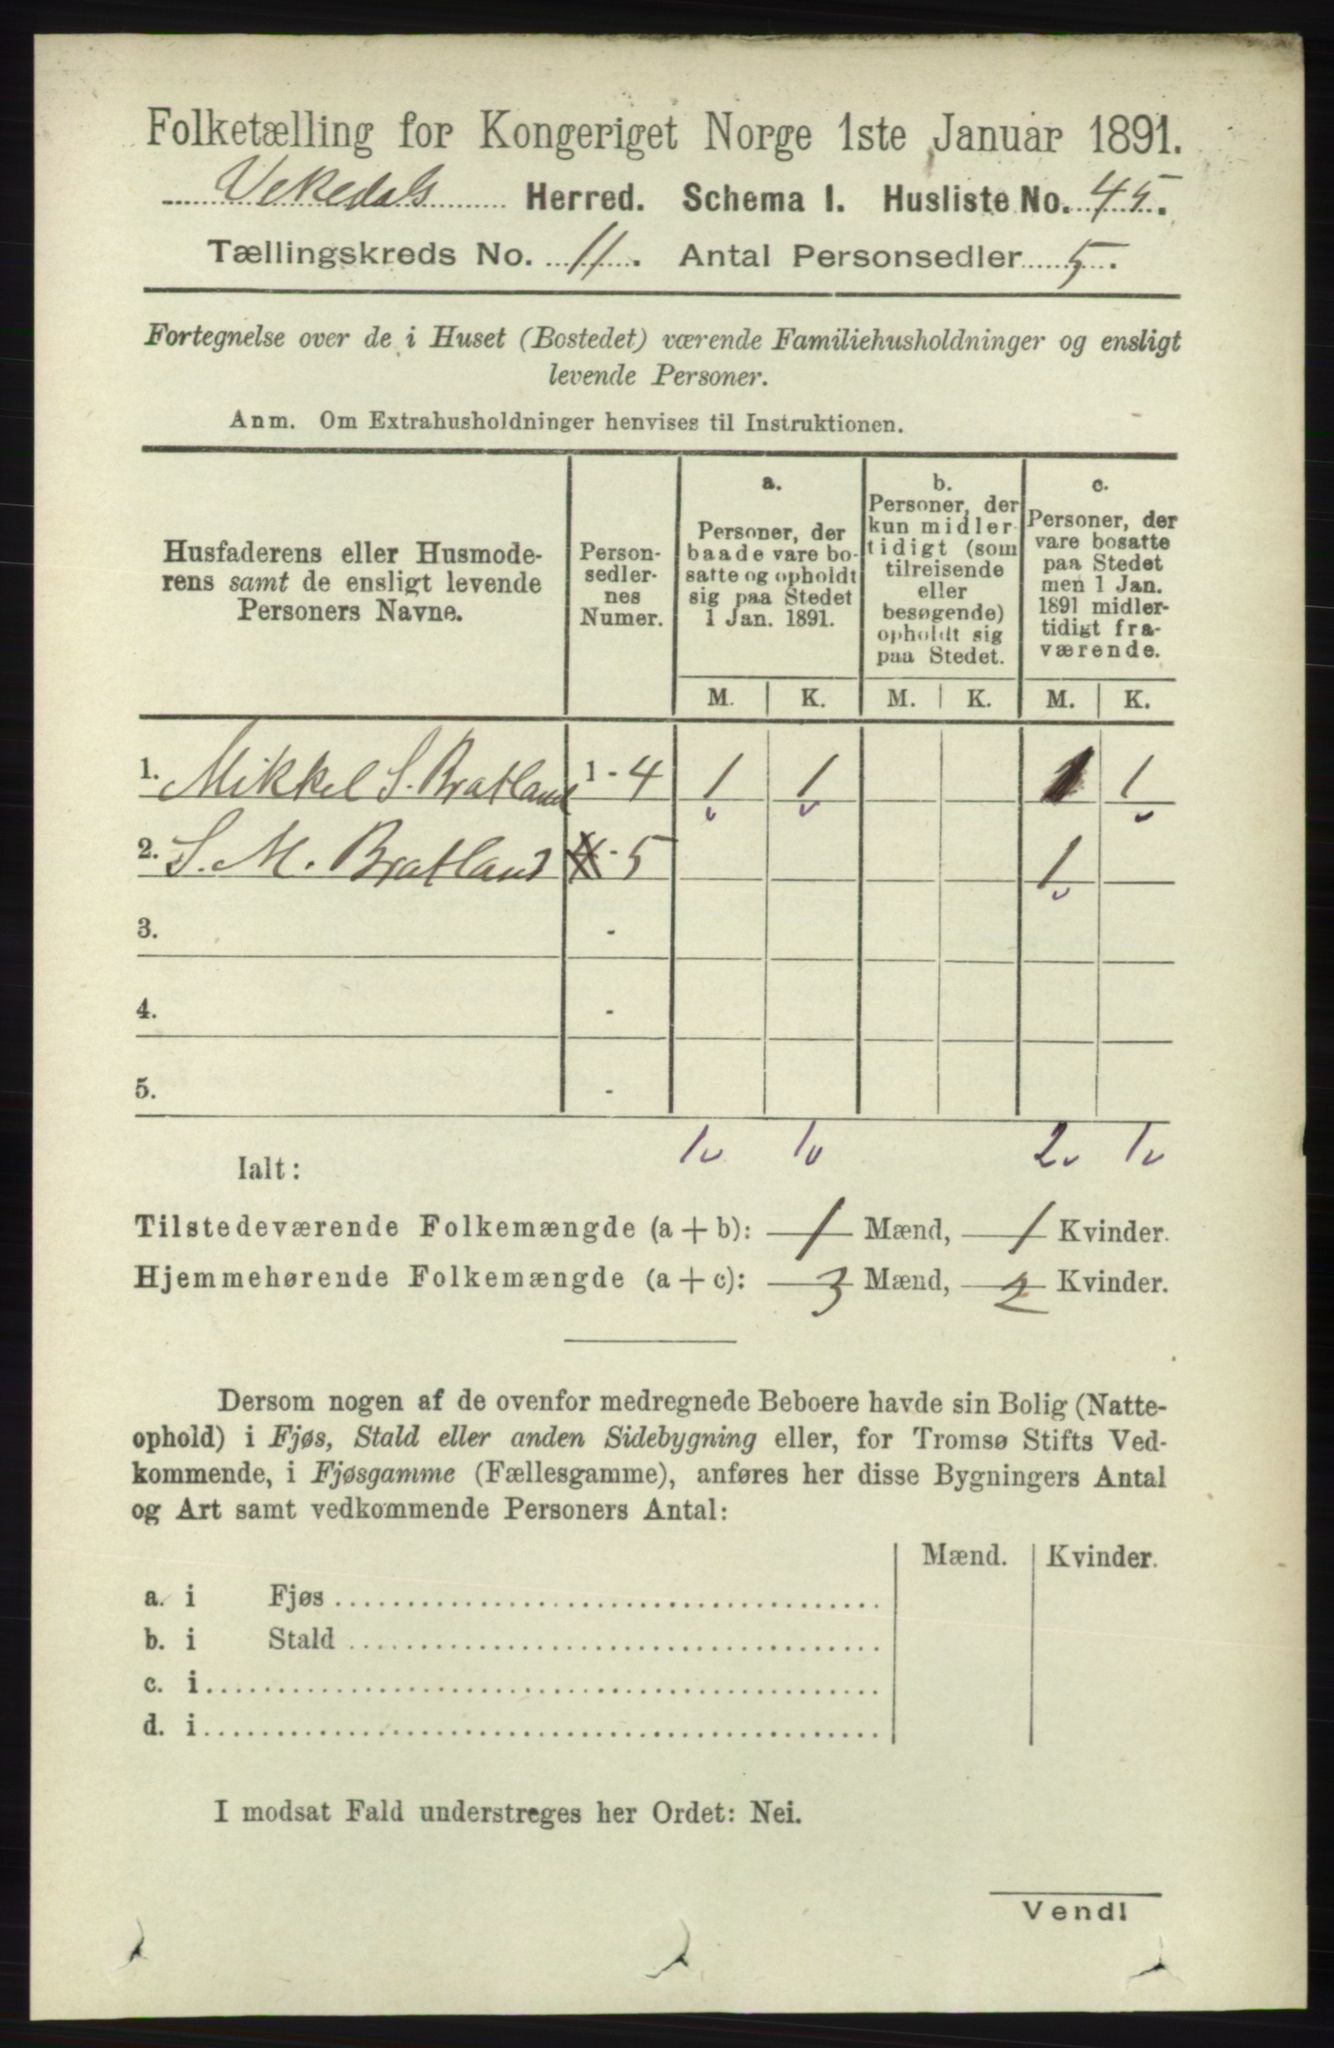 Folketælling for Kongeriget Norge 1ste Januar 1891.
Vikedals Herred. Schema I. Husliste No. 45.
Tællingskreds No. 11. Antal Personsedler 5.
Fortegnelse over de i Huset (Bostedet) værende Familiehusholdninger og ensligt
levende Personer.
Anm. Om Extrahusholdninger henvises til Instruktionen.
Husfaderens eller Husmode-
rens samt de ensligt levende
Personers Navne.
Person-
sedler-
nes
Numer.
a.
Personer, der
baade vare bo-
satte og opholdt
sig paa Stedet
1 Jan. 1891.
b.
Personer, der
kun midler-
tidigt (som
tilreisende
eller
besøgende)
opholdt sig
paa Stedet.
c.
Personer, der
vare bosatte
paa Stedet
men 1 Jan.
1891 midler-
tidigt fra-
værende.
M. K. M. K. M. K.
1. Mikkel S. Bratland 1 - 4 1 1 1 1
2. S. M. Bratland - 5 1
3. -
4. -
5. -
Ialt: 1 1 2 1
Tilstedeværende Folkemængde (a + b): 1 Mænd, 1 Kvinder.
Hjemmehørende Folkemængde (a + c): 3 Mænd, 2 Kvinder.
Dersom nogen af de ovenfor medregnede Beboere havde sin Bolig (Natte-
ophold) i Fjøs, Stald eller anden Sidebygning eller, for Tromsø Stifts Ved-
kommende, i Fjøsgamme (Fællesgamme), anføres her disse Bygningers Antal
og Art samt vedkommende Personers Antal:
Mænd. Kvinder.
a. i Fjøs
b. i Stald
c. i
d. i
I modsat Fald understreges her Ordet: Nei.
Vend!